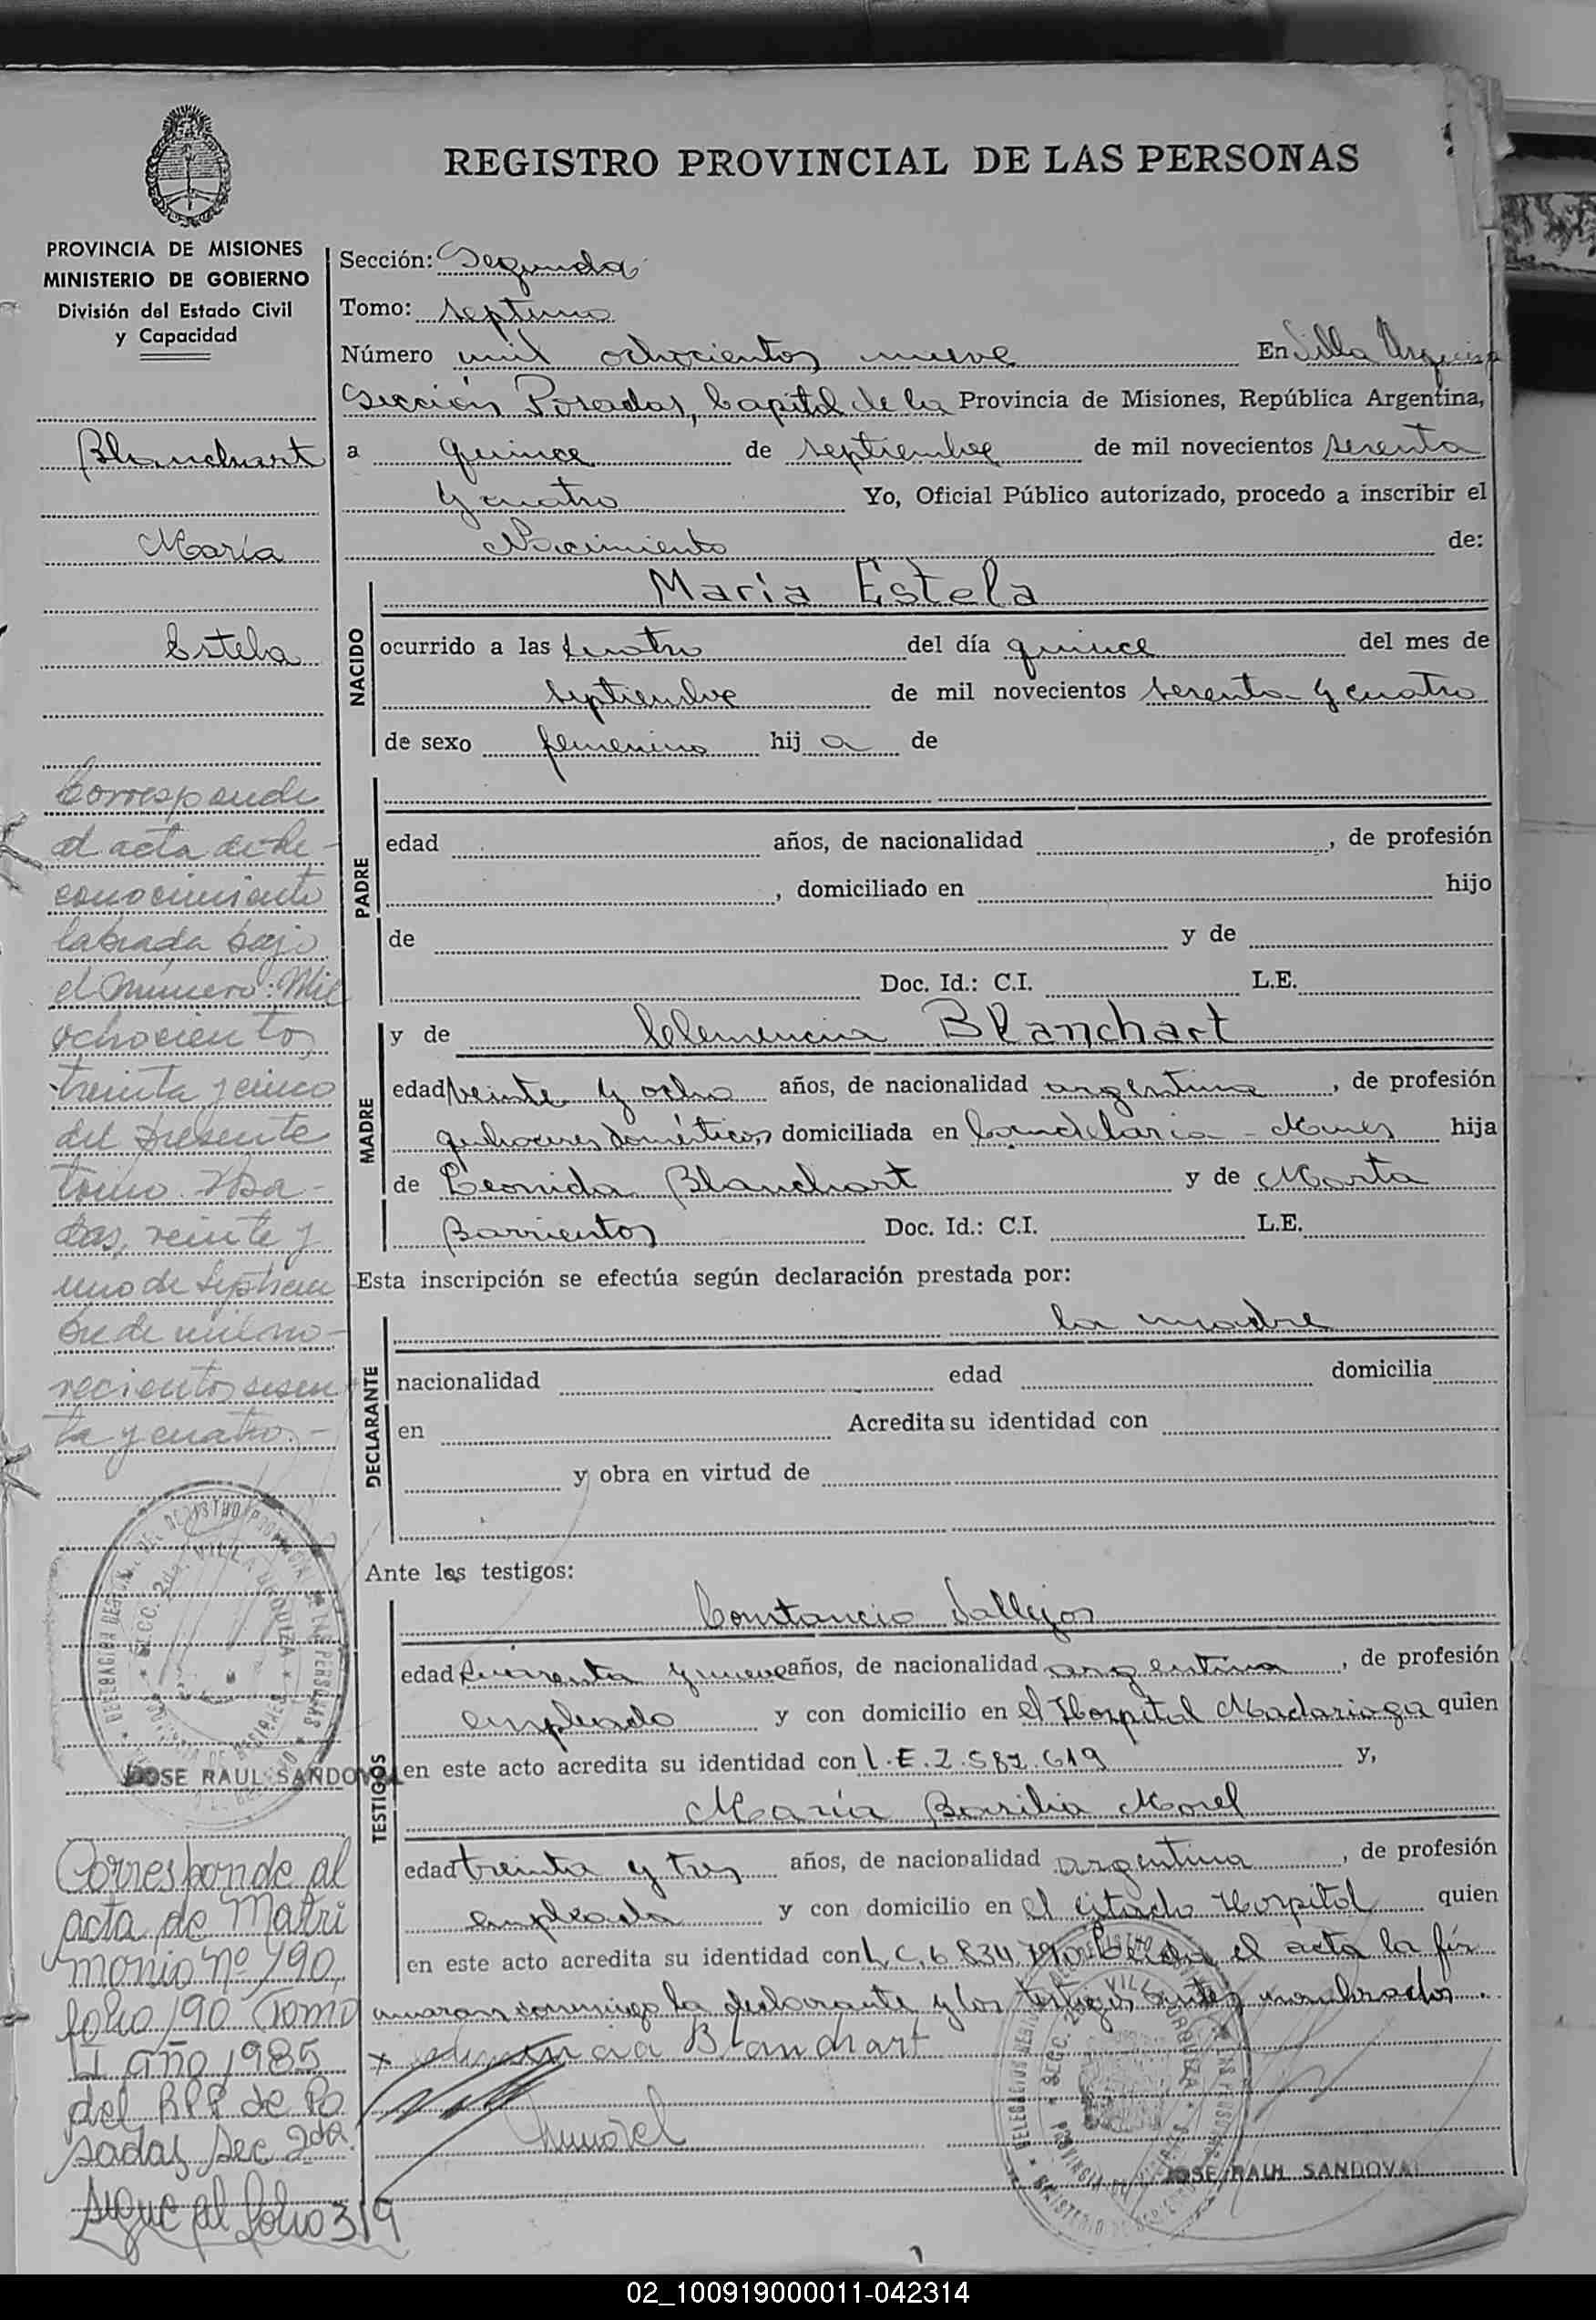 REGISTRO PROVINCIAL DE LAS PERSONAS
PROVINCIA DE MISIONES
MINISTERIO DE GOBIERNO
División del Estado Civil
y Capacidad
Blanchart
María
Estela
Corresponde
al acta de Re-
conocimiento
labrada bajo
el número: Mil
ochocientos
treinta y cinco
del presente
tomo. Posa-
das, veinte y
uno de septiem
bre de mil no-
vecientos sesen
ta y cuatro.-
SECC. 2da. VILLA URQUIZA
JOSE RAUL SANDOVAL
Corresponde al
acta de Matri
monio nº 190
folio 190 Tomo
I año 1985
del RPP de Po
sadas Sec 2da.
Sigue al folio 319
Sección: Segunda
Tomo: septimo
Número mil ochocientos nueve En Villa Urquiza
Sección Posadas, Capital de la Provincia de Misiones, República Argentina,
a quince de septiembre de mil novecientos sesenta
y cuatro Yo, Oficial Público autorizado, procedo a inscribir el
Nacimiento de:
NACIDO
María Estela
ocurrido a las cuatro del día quince del mes de
septiembre de mil novecientos sesenta y cuatro
de sexo femenino hij a de
PADRE
edad años, de nacionalidad , de profesión
, domiciliado en hijo
de y de
Doc. Id.: C.I. L.E.
MADRE
y de Clemencia Blanchart
edad veinte y ocho años, de nacionalidad argentina , de profesión
quehaceres domésticos domiciliada en Candelaria - Mnes hija
de Leonida Blanchart y de Marta
Barrientos Doc. Id.: C.I. L.E.
Esta inscripción se efectúa según declaración prestada por:
DECLARANTE
la madre
nacionalidad edad domicilia
en Acredita su identidad con
y obra en virtud de
Ante los testigos:
TESTIGOS
Constancio Vallejos
edad cuarenta y nueve años, de nacionalidad argentina , de profesión
empleado y con domicilio en el Hospital Madariaga quien
en este acto acredita su identidad con L.E.2.587.619 y,
María Basilia Morel
edad treinta y tres años, de nacionalidad argentina , de profesión
empleada y con domicilio en el citado Hospital quien
en este acto acredita su identidad con L.C.6.834.790 Leida el acta la fir
maran conmigo la declarante y los testigos antes nombrados.
x Clemencia Blanchart
Mmorel
SECC. 2da. VILLA URQUIZA
JOSE RAUL SANDOVAL
02_100919000011-042314